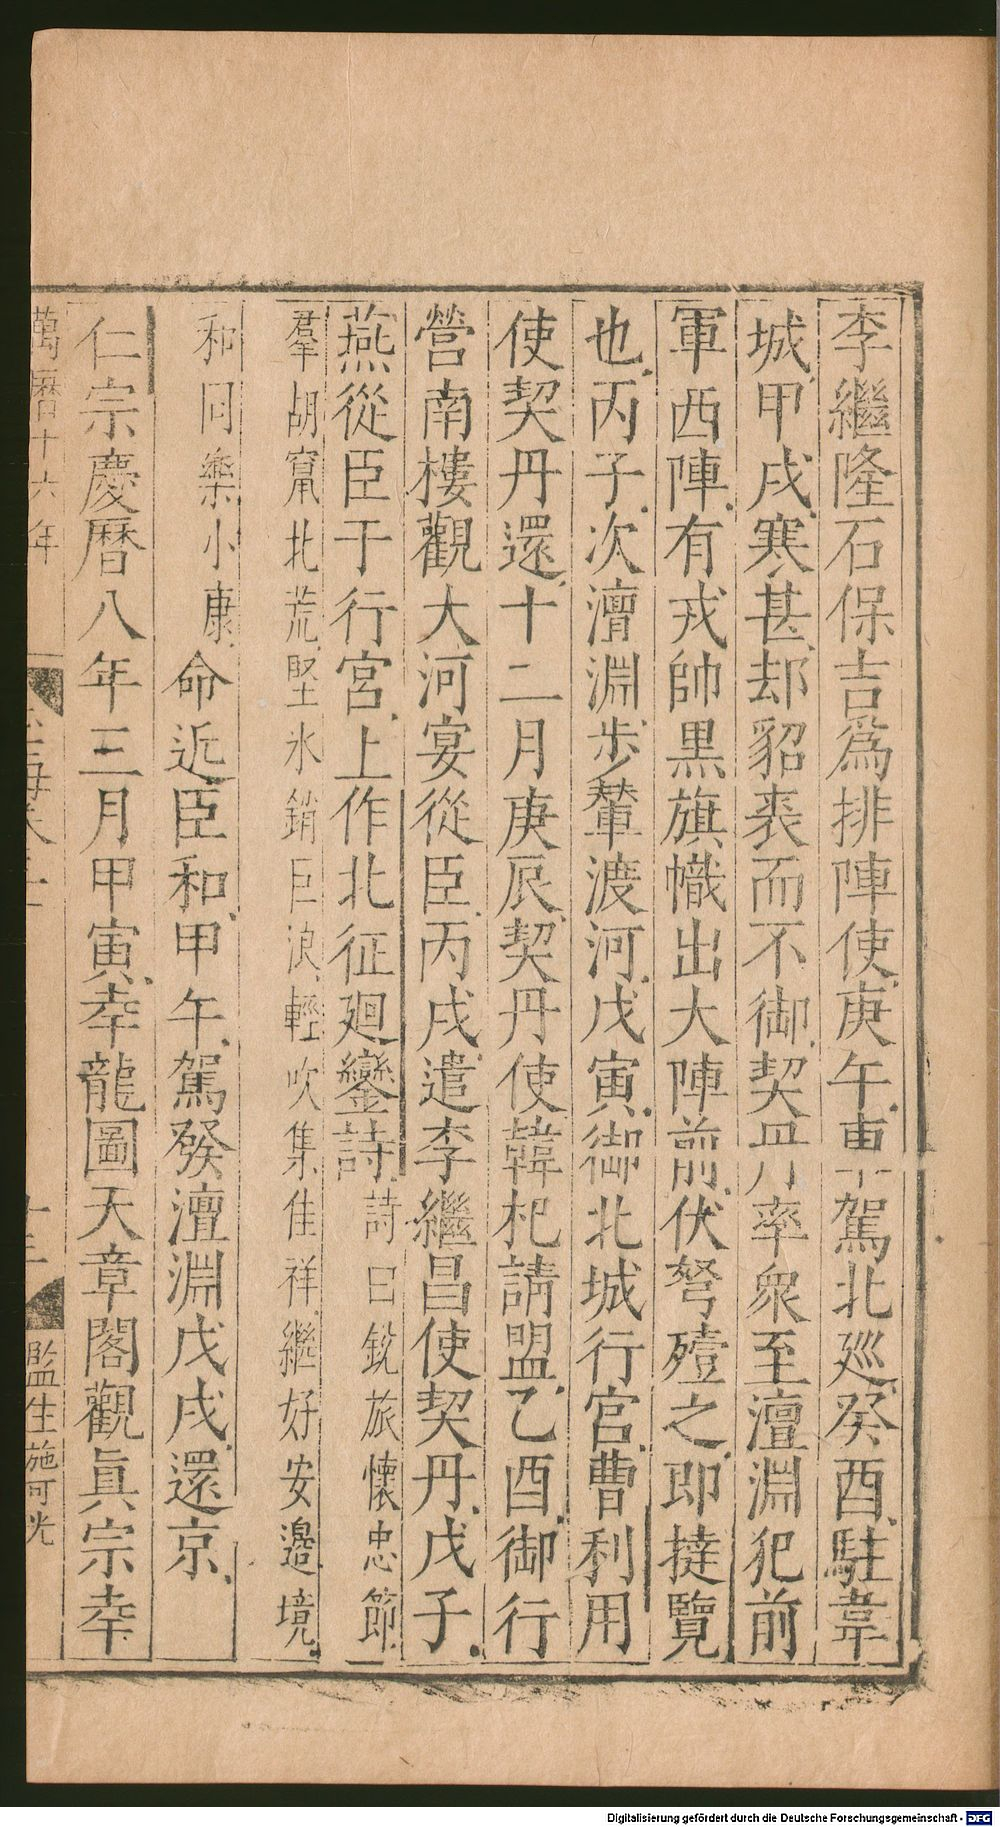 李繼隆石保吉爲排陣使庚午車駕北廵癸酉駐韋
城甲戌寒甚却貂裘而不御契丹率衆至澶淵犯前
軍西陣有戎帥黒旗幟出大陣前伏弩殪之即撻覽
也丙子次澶淵步輦渡河戊寅御北城行宮曹利用
使契丹還十二月庚辰契丹使韓杞請盟乙酉御行
營南樓觀大河宴從臣丙戌遣李繼昌使契丹戊子
燕從臣于行宮上作北征廻鑾詩詩曰銳旅懷忠節
羣胡竄北荒堅氷銷巨浪輕吹集佳祥繼好安邊境
和同樂小康命近臣和甲午駕發澶淵戊戌還京
仁宗慶曆八年三月甲寅幸龍圖天章閣觀眞宗幸
萬曆十六年
監生施可光
Digitalisierung gefördert durch die Deutsche Forschungsgemeinschaft - DFG